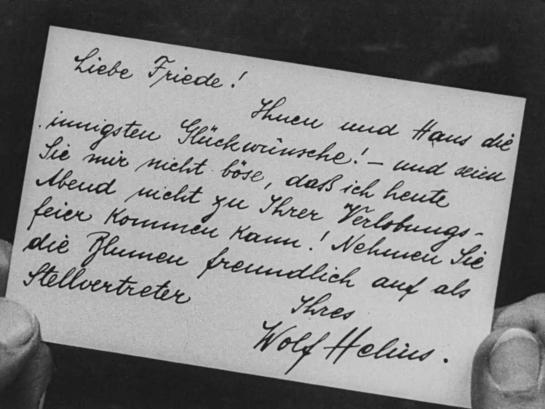 Liebe Friede!
Ihnen und Hans die
innigsten Glückwünsche! – und seien
Sie mir nicht böse, daß ich heute
Abend nicht zu Ihrer Verlobungs-
feier kommen kann! Nehmen Sie
die Blumen freundlich auf als
Stellvertreter
Ihres
Wolf Helius.